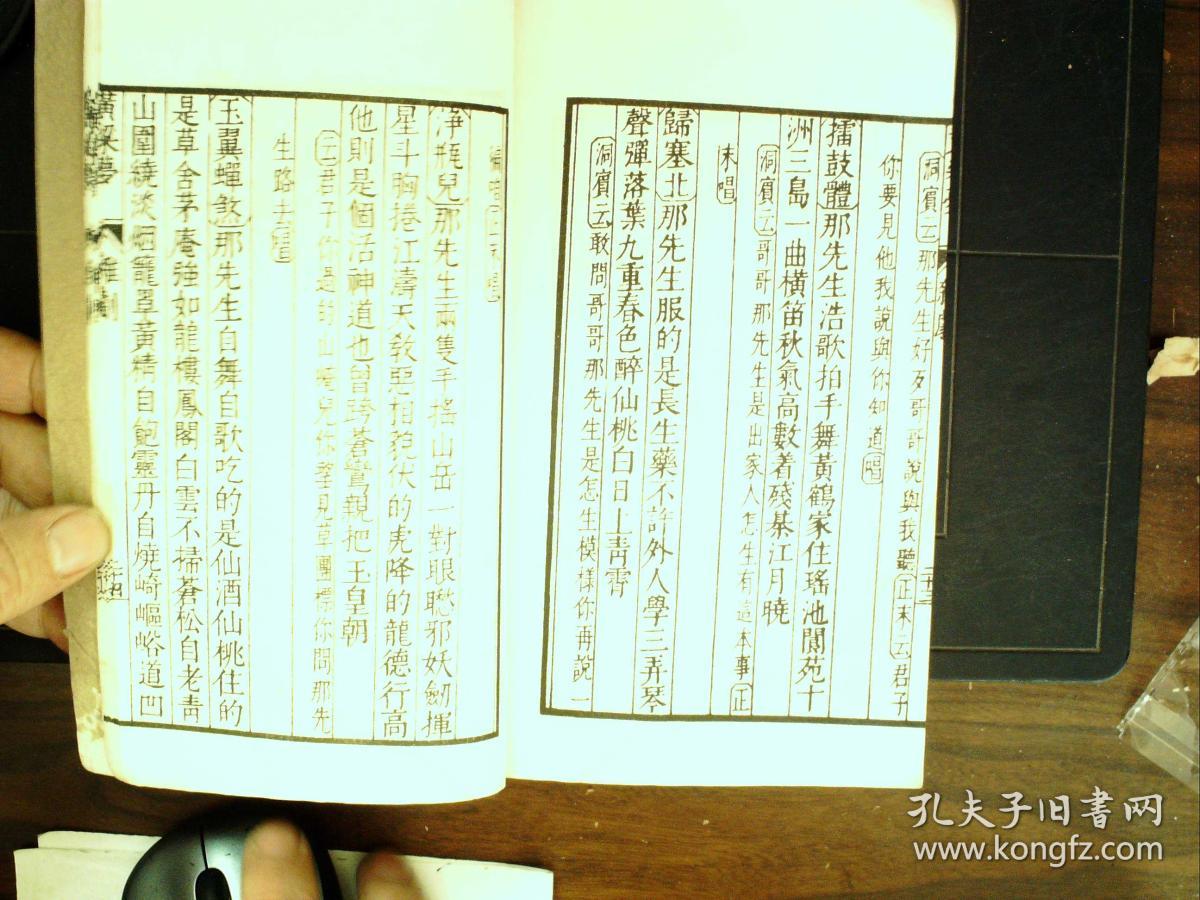 洞賓云那先生好歹哥哥說與我聽正末云君子
你要見他我說與你知道唱
擂鼓體那先生浩歌拍手舞黃鶴家住瑤池閬苑十
洲三島一曲橫笛秋氣高數着殘棊江月曉
洞賓云哥哥那先生是出家人怎生有這本事正
末唱
歸塞北那先生服的是長生藥不許外人學三弄琴
聲彈落葉九重春色醉仙桃白日上青霄
洞賓云敢問哥哥那先生是怎生模樣你再說一
徧咱正末唱
淨瓶兒那先生兩隻手搖山岳一對眼𥈭邪妖劒揮
星斗胸捲江濤天敎惡相貌伏的虎降的龍德行高
他則是個活神道也曾跨蒼鸞親把玉皇朝
云君子你是的山峪兒你望見草團標你問那先
生路去唱
玉翼蟬煞那先生自舞自歌吃的是仙酒仙桃住的
是草舍茅庵強如龍樓鳳閣白雲不掃蒼松自老青
山圍繞淡烟籠罩黃精自飽靈丹自燒崎嶇峪道凹
黃粱夢 雜劇
孔夫子旧书网
www.kongfz.com